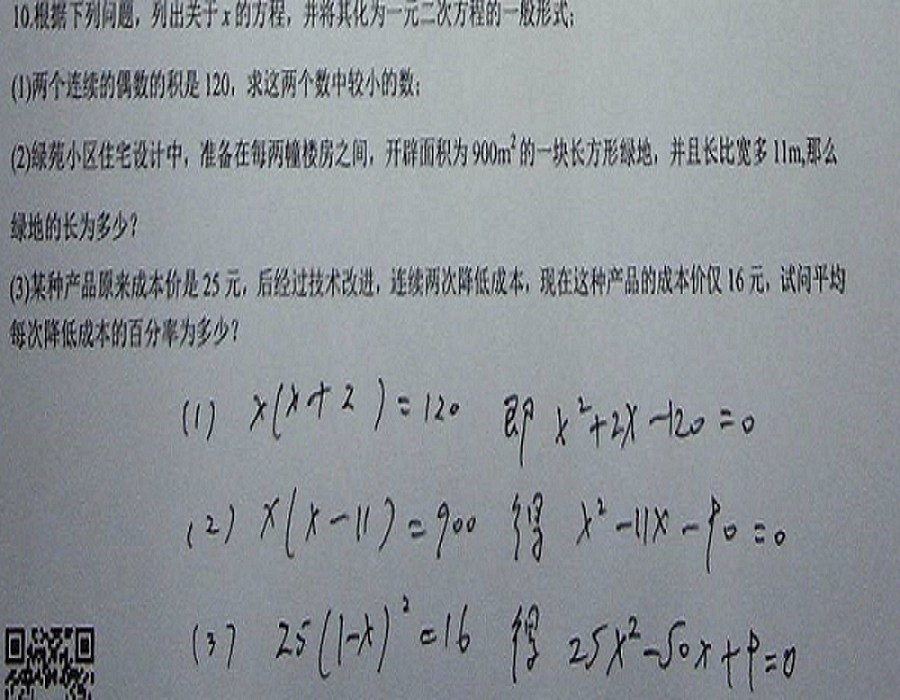 10.根据下列问题，列出关于x的方程，并将其化为一元二次方程的一般形式；
(1)两个连续的偶数的积是120，求这两个数中较小的数；
(2)绿苑小区住宅设计中，准备在每两幢楼房之间，开辟面积为900m²的一块长方形绿地，并且长比宽多11m,那么
绿地的长为多少？
(3)某种产品原来成本价是25元，后经过技术改进，连续两次降低成本，现在这种产品的成本价仅16元，试问平均
每次降低成本的百分率为多少？
(1) x(x+2)=120 即 x²+2x-120=0
(2) x(x-11)=900 得 x²-11x-90=0
(3) 25(1-x)²=16 得 25x²-50x+9=0